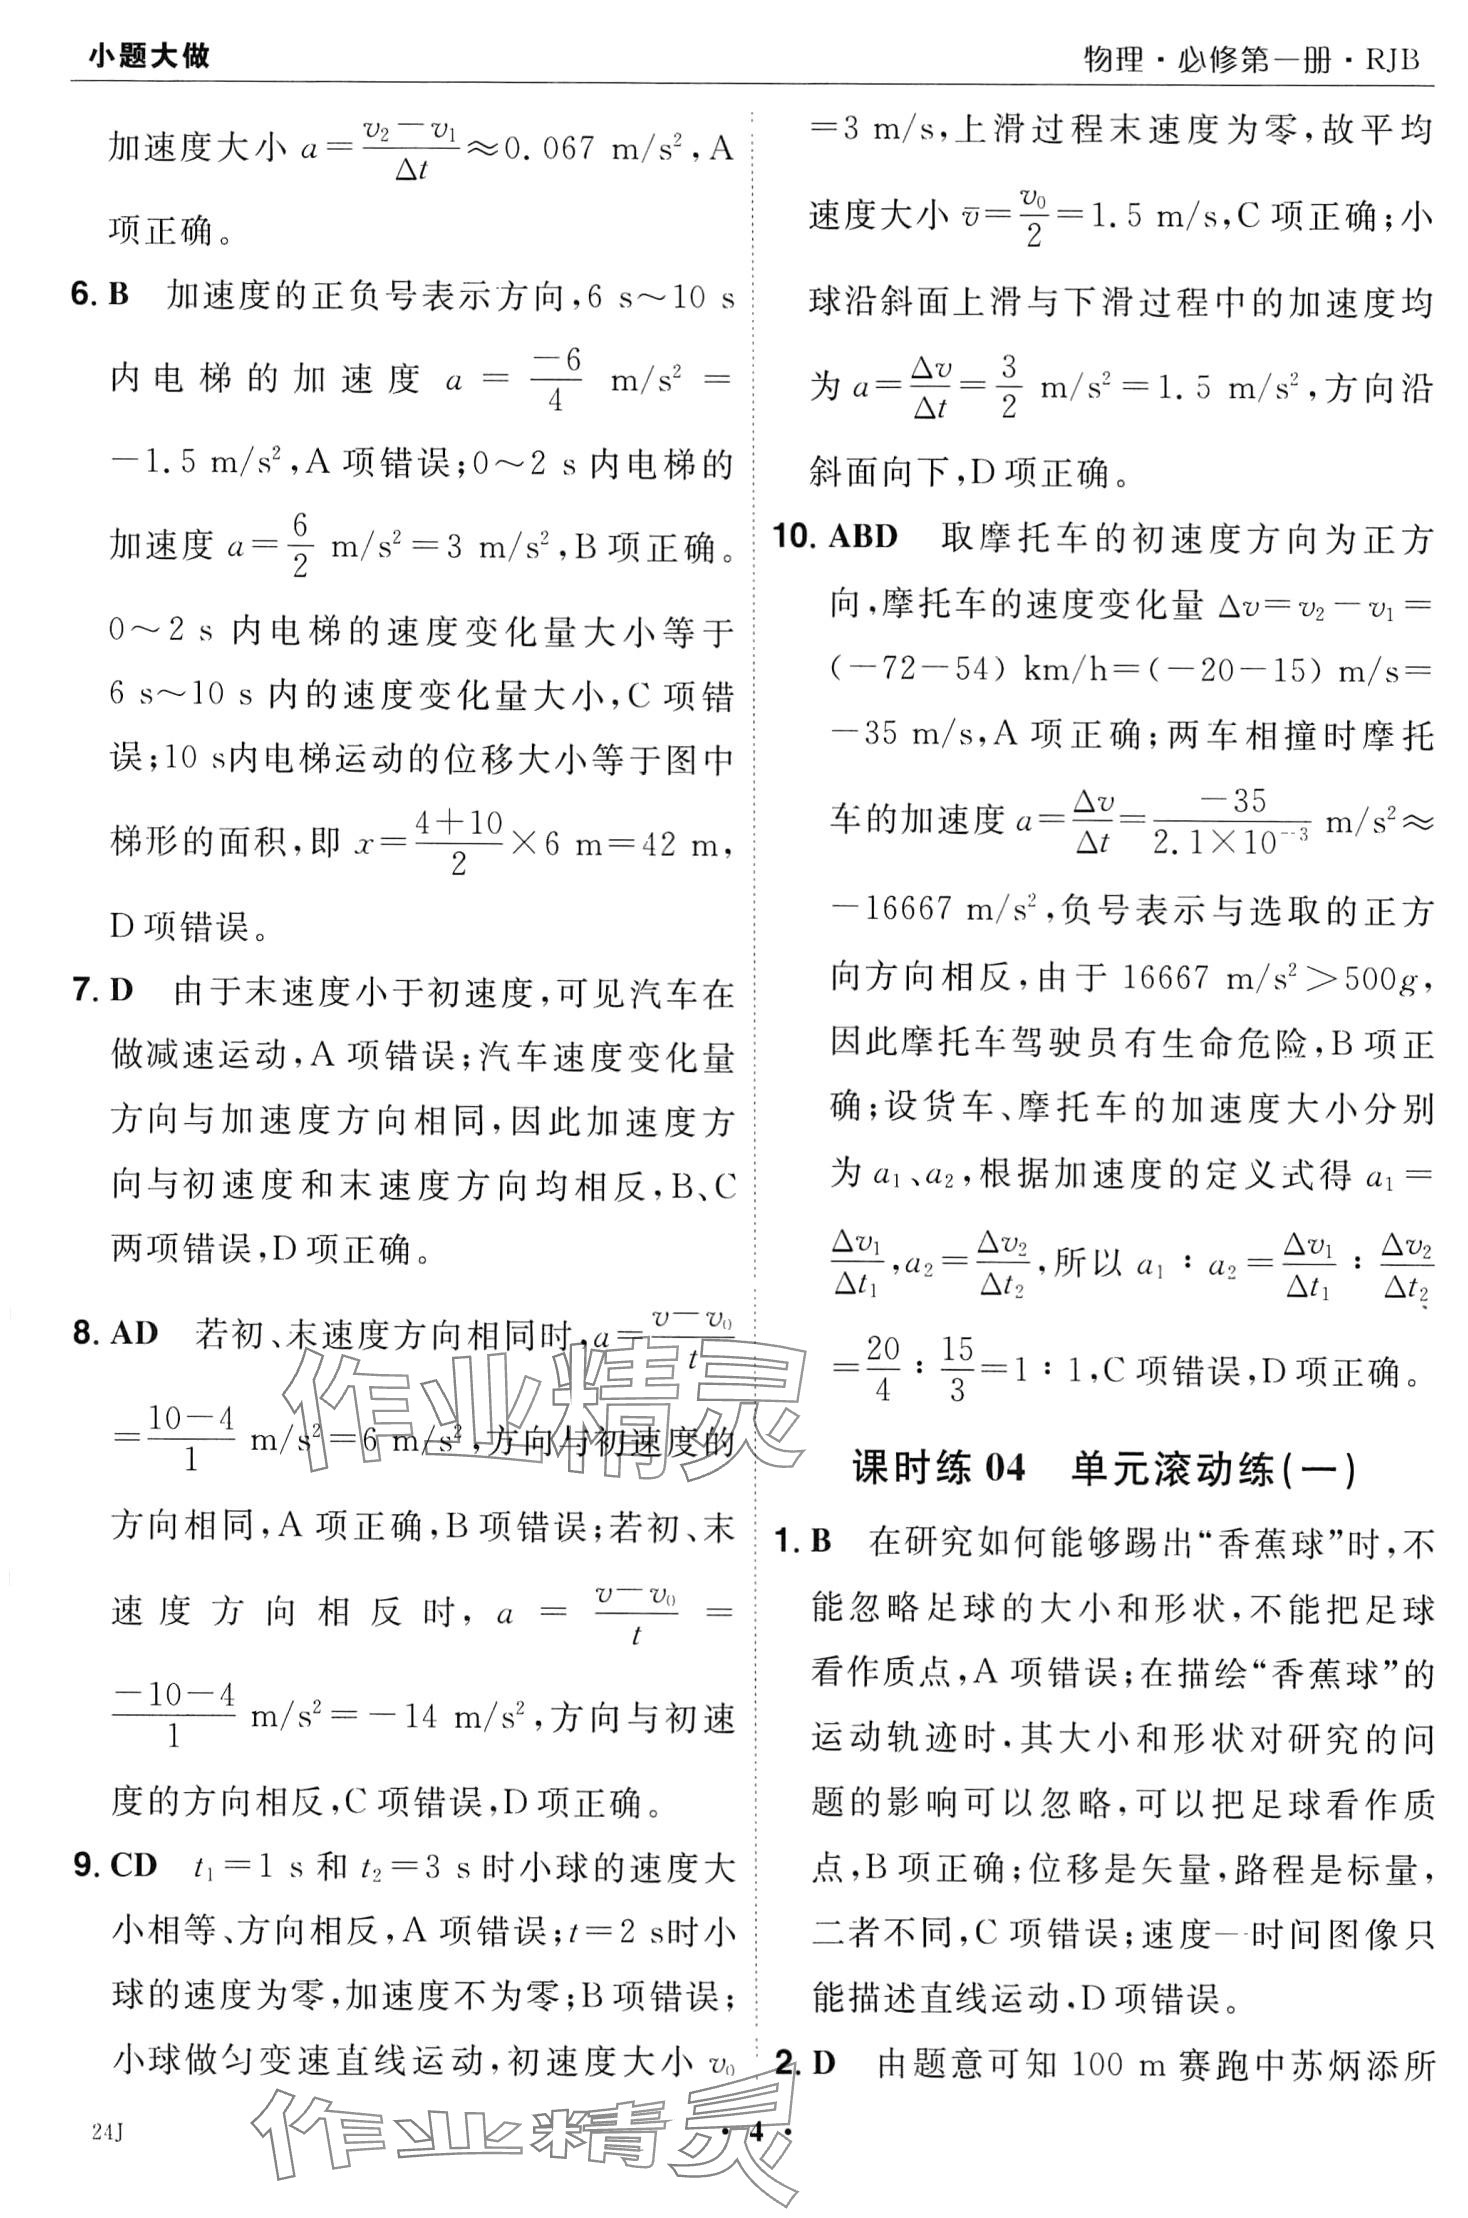 小题大做
物理·必修第一册·RJB
加速度大小 a=\frac{v₂-v₁}{Δt}≈0.067 m/s²,A
项正确。
6. B 加速度的正负号表示方向,6 s～10 s
内电梯的加速度 a=\frac{-6}{4} m/s²=
-1.5 m/s²,A 项错误;0～2 s 内电梯的
加速度 a=\frac{6}{2} m/s²=3 m/s²,B 项正确。
0～2 s 内电梯的速度变化量大小等于
6 s～10 s 内的速度变化量大小,C 项错
误;10 s内电梯运动的位移大小等于图中
梯形的面积,即 x=\frac{4+10}{2}×6 m=42 m,
D 项错误。
7. D 由于末速度小于初速度,可见汽车在
做减速运动,A 项错误;汽车速度变化量
方向与加速度方向相同,因此加速度方
向与初速度和末速度方向均相反,B、C
两项错误,D 项正确。
8. AD 若初、末速度方向相同时,a=\frac{v-v₀}{t}
=\frac{10-4}{1} m/s²=6 m/s²,方向与初速度的
方向相同,A 项正确,B 项错误;若初、末
速度方向相反时,a=\frac{v-v₀}{t}=
\frac{-10-4}{1} m/s²=-14 m/s²,方向与初速
度的方向相反,C 项错误,D 项正确。
9. CD t₁=1 s 和 t₂=3 s 时小球的速度大
小相等、方向相反,A 项错误;t=2 s时小
球的速度为零,加速度不为零;B 项错误;
小球做匀变速直线运动,初速度大小 v₀
=3 m/s,上滑过程末速度为零,故平均
速度大小 v̄=\frac{v₀}{2}=1.5 m/s,C 项正确;小
球沿斜面上滑与下滑过程中的加速度均
为 a=\frac{Δv}{Δt}=\frac{3}{2} m/s²=1.5 m/s²,方向沿
斜面向下,D 项正确。
10. ABD 取摩托车的初速度方向为正方
向,摩托车的速度变化量 Δv=v₂-v₁=
(-72-54) km/h=(-20-15) m/s=
-35 m/s,A 项正确;两车相撞时摩托
车的加速度 a=\frac{Δv}{Δt}=\frac{-35}{2.1×10⁻³} m/s²≈
-16667 m/s²,负号表示与选取的正方
向方向相反,由于 16667 m/s²>500g,
因此摩托车驾驶员有生命危险,B 项正
确;设货车、摩托车的加速度大小分别
为 a₁、a₂,根据加速度的定义式得 a₁=
\frac{Δv₁}{Δt₁},a₂=\frac{Δv₂}{Δt₂},所以 a₁∶a₂=\frac{Δv₁}{Δt₁}∶\frac{Δv₂}{Δt₂}
=\frac{20}{4}∶\frac{15}{3}=1∶1,C 项错误,D 项正确。
课时练 04 单元滚动练(一)
1. B 在研究如何能够踢出“香蕉球”时,不
能忽略足球的大小和形状,不能把足球
看作质点,A 项错误;在描绘“香蕉球”的
运动轨迹时,其大小和形状对研究的问
题的影响可以忽略,可以把足球看作质
点,B 项正确;位移是矢量,路程是标量,
二者不同,C 项错误;速度—时间图像只
能描述直线运动,D 项错误。
2. D 由题意可知 100 m 赛跑中苏炳添所
作业精灵
作业精灵
24J
· 4 ·